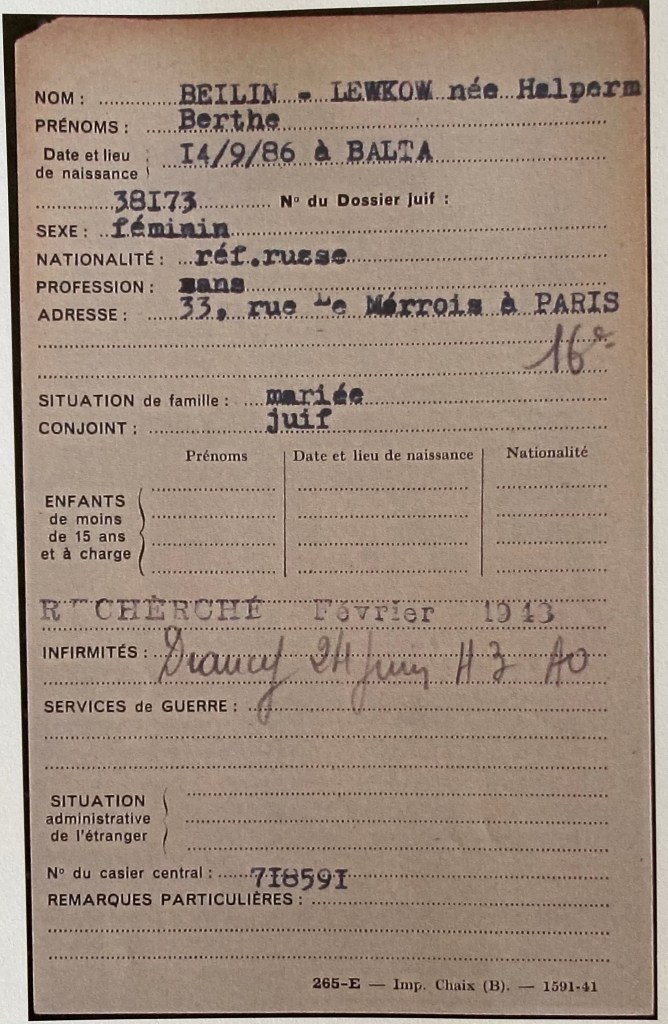 NOM : BEILIN - LEWKOW née Halperm
PRÉNOMS : Berthe
Date et lieu de naissance I4/9/86 à BALTA
38I73 N° du Dossier juif :
SEXE : féminin
NATIONALITÉ : réf.russe
PROFESSION : sans
ADRESSE : 33, rue Le Mérrois à PARIS
16e
SITUATION de famille : mariée
CONJOINT : juif
Prénoms Date et lieu de naissance Nationalité
ENFANTS
de moins
de 15 ans
et à charge
RECHERCHÉ Février 1943
INFIRMITÉS : Drancy 24 juin 43 AO
SERVICES de GUERRE :
SITUATION
administrative
de l'étranger
N° du casier central : 7I859I
REMARQUES PARTICULIÈRES :
265-E — Imp. Chaix (B). — 1591-41